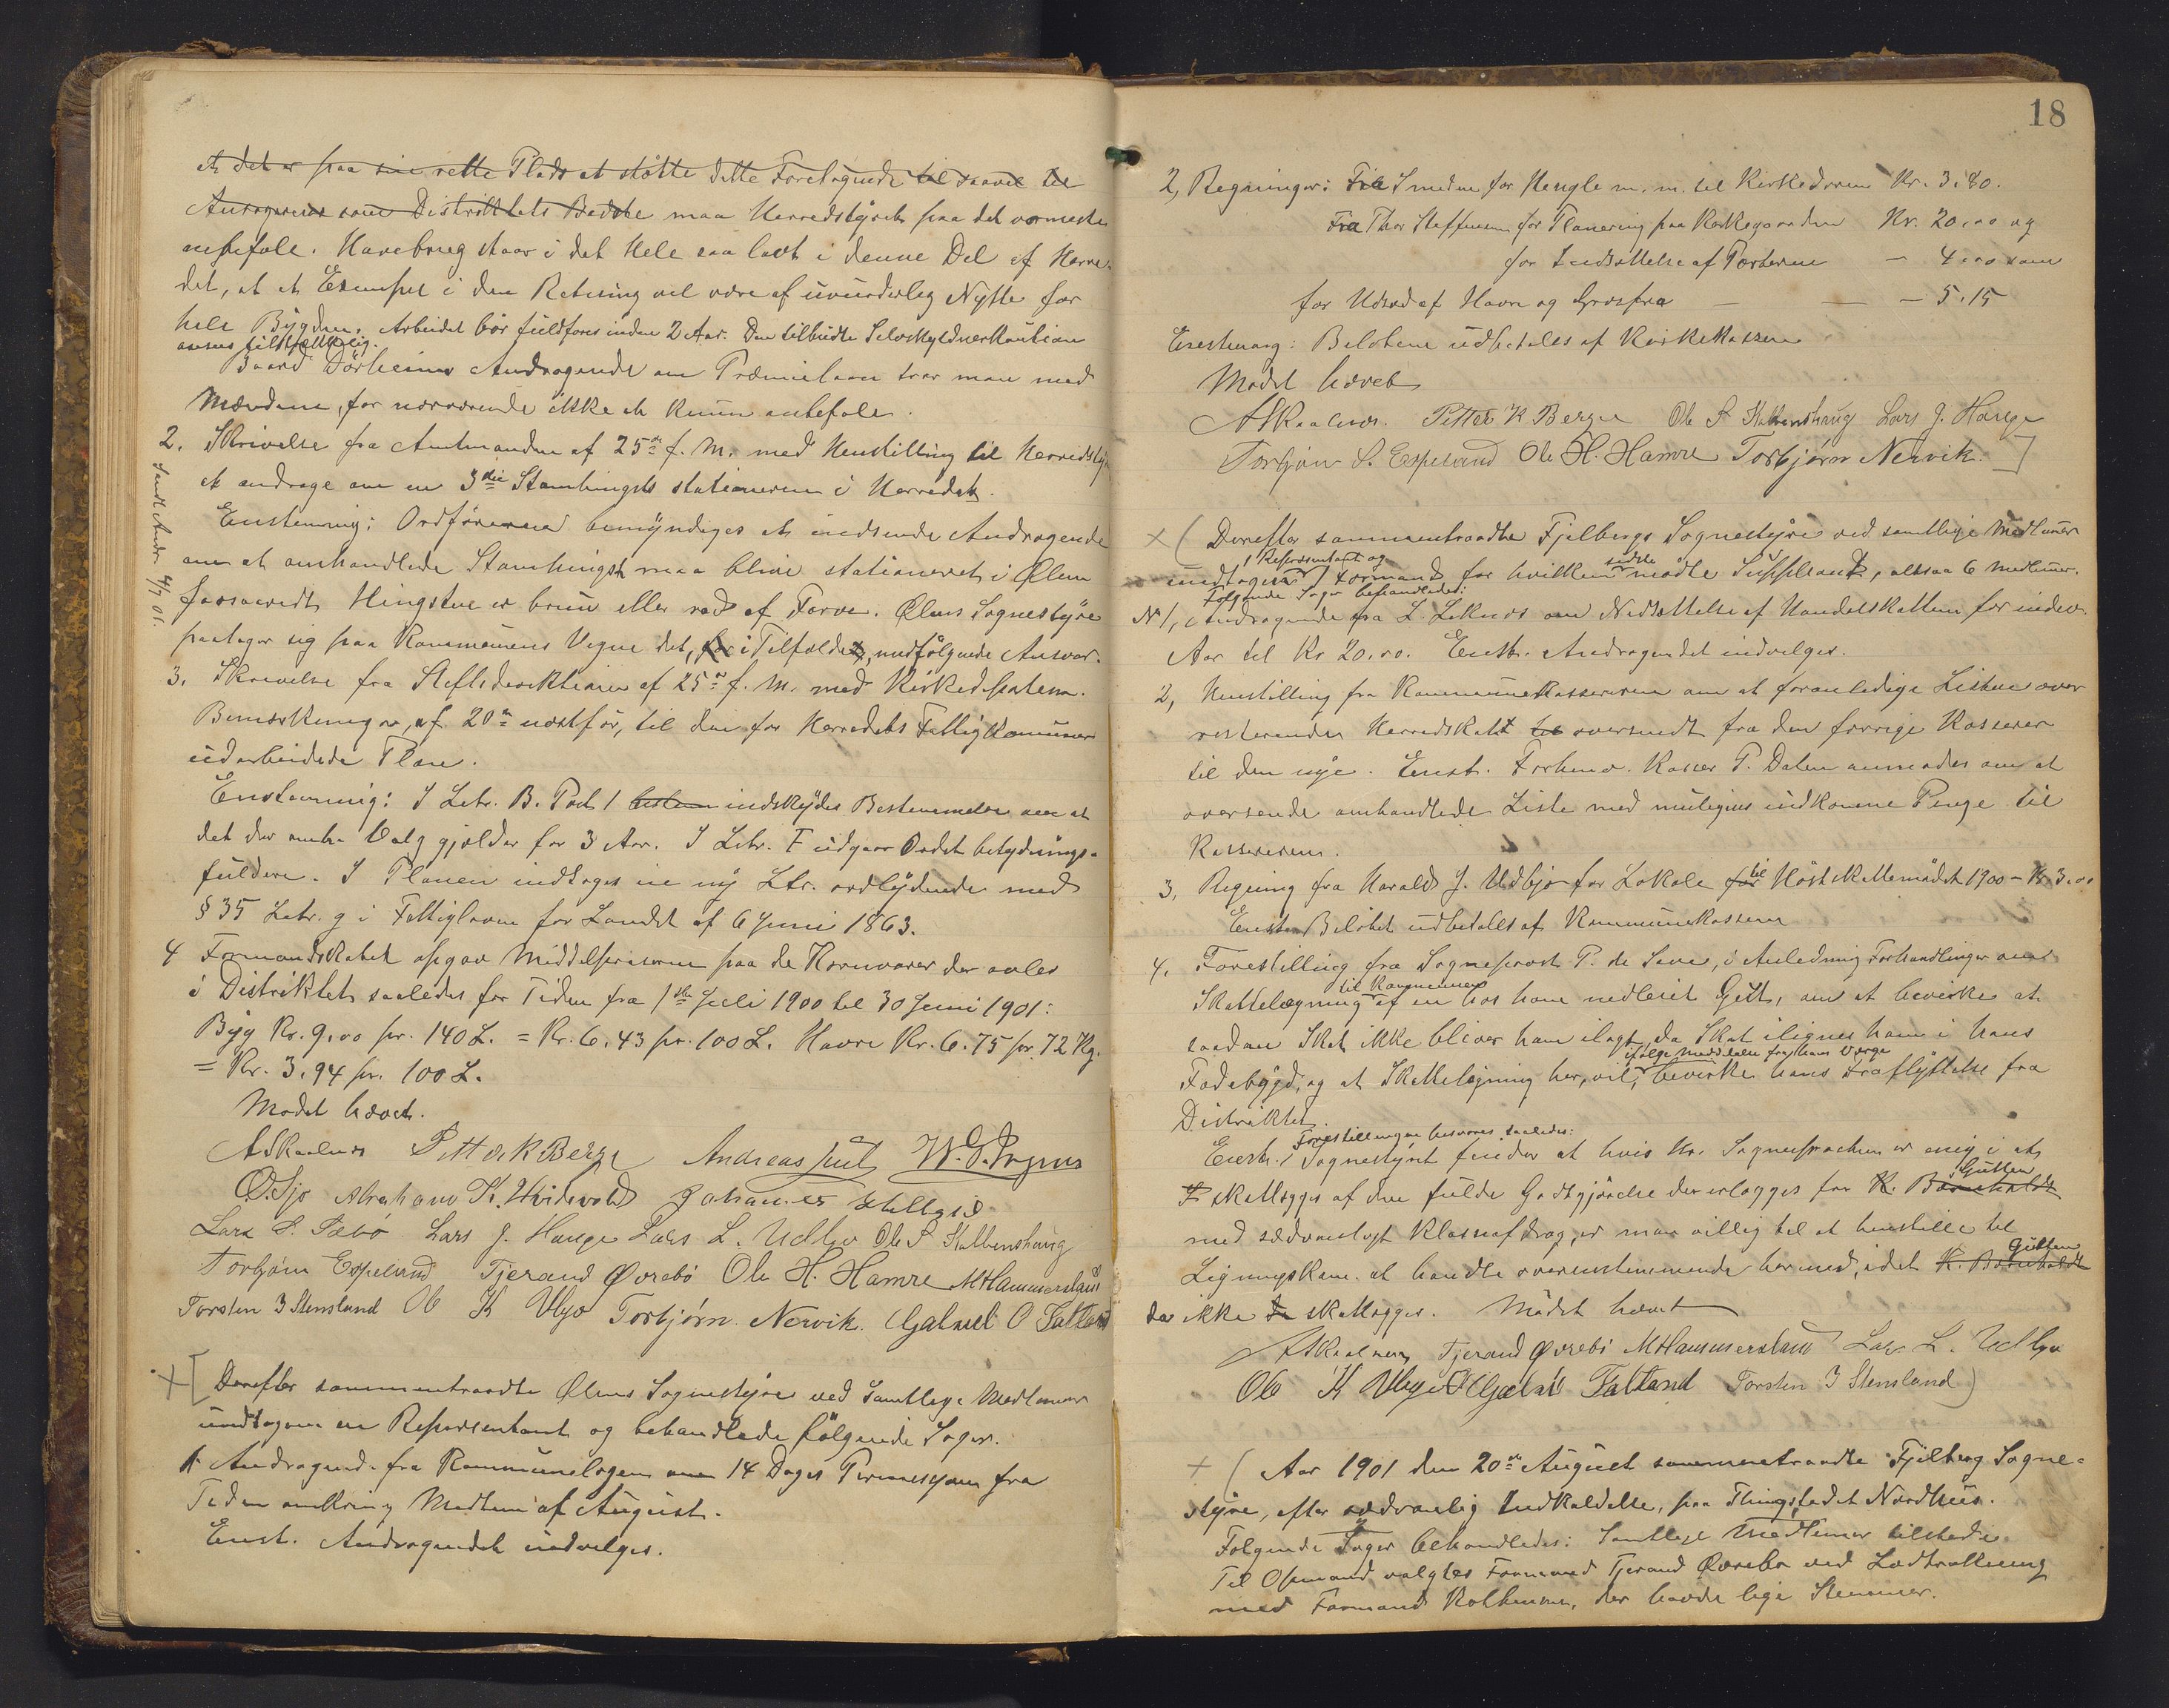 at det er paa sin rette Plads at støtte dette Foretagende til saavel til
Ansøgerens som Distriktets Bedste maa Herredstyret paa det varmeste
anbefale. Havebrug staar i det Hele saa lavt i denne Del af Herre-
det, at et Exempel i den Retning vil være af uvurderlig Nytte for
hele Bygden. Arbeidet bør fuldføres inden 2 Aar. Den tilbudte Selvskyldnerkaution
ansees fyldestgjørende.
Baard Dørheims Andragende om Præmielaan tror man med
Mændene, for nærværende ikke at kunne anbefale.
2. Skrivelse fra Amtmanden af 25de f. M. med Henstilling til Herredsty
at andrage om en 3die Stamhingsts stationeren i Herredet.
Sendt Andr. 4/7 01.
Enstemmig: Ordføreren bemyndiges at indsende Andragende
om at omhandlede Stamhingst maa blive stationeret i Ølen
forsaavidt Hingsten er brun eller rød af Farve. Ølens Sognestyre
paatager sig paa Kommunens Vegne det, for i Tilfældet, medfølgende Ansvar.
3. Skrivelse fra Stiftsdirektionen af 25de f. M. med Kirkedepartem.
Bemærkninger, af 20de næstfør, til den for Herredets Fattigkommuner
udarbeidede Plan.
Enstemmig: I Letr. B. Post 1 indskydes Bestemmelse om at
det der omh. Valg gjelder for 3 Aar. I Litr. F udgaar Ordet betydnings-
fuldere. I Planen indtages en ny Ltr. ordlydende med
§ 35 Letr. g i Fattigloven for Landet af 6 Juni 1863.
4 Formandskabet opgav Middelpriserne paa de Kornvarer der avles
i Distriktet saaledes for Tiden fra 1ste Juli 1900 til 30 Juni 1901:
Byg Kr. 9.00 pr. 140 L. = Kr. 6.43 pr. 100 L. Havre Kr. 6.75 pr. 72 Kg.
= Kr. 3.94 pr. 100 L.
Mødet hævet.
A Skaalnes Petter K Berge Andreas Juul
Ø. Sjo Abraham K. Hvidevold Johannes
Lars S. Sæbø Lars J. Hauge Lars L. Udbjo Ole S Kallenshaug
Torbjørn Espeland Tjerand Øvrebø Ole H. Hamre M Hammerslaus
Torsten J Stensland Ole K Ulvø Torbjørn Nervik. Gabriel O Fatland
+ [ Derefter sammentraadte Ølens Sognestyre ved samtlige Medlemer
undtagen en Repræsentant og behandlede følgende Sager.
1. Andragende fra Kommunelægen om 14 Dages Permission fra
Tiden omkring Medium af August.
Enst. Andragendet indvilges.
18
2, Regninger: Fra Smeden for Hengsle m. m. til Kirkedøren Kr. 3.80.
Fra Thor Steffensen for Planering paa Kirkegaarden Kr. 20.00 og
for Indsættelse af Portene – 4.00 samt
for Udsæd af Havre og Græsfrø – – – 5.15
Enstemmig: Beløbene udbetales af Kirkekassen
Mødet hævet
A Skaalnes. Petter K Berge Ole S Kallenshaug Lars J. Hauge
Torbjørn S. Espeland Ole H. Hamre Torbjørn Nervik. ]
+ ( Derefter sammentraadte Fjelbergs Sognestyre ved samtlige Medlemer
1 Repræsentant og sidste
undtagen 1 Formand for hvilken mødte Suppleant, altsaa 6 Medlemer.
Følgende Sager behandledes:
No 1, Andragende fra L. Leknes om Nedsættelse af Handelskatten for indev.
Aar til Kr 20.00. Enst. Andragendet indvilges.
2, Henstilling fra Kommunekassereren om at foranledige Listen over
resterende Herredskatt oversendt fra den forrige Kasserer
til den nye. Enst. Forhenv. Kasser P. Dalen anmodes om at
oversende omhandlede Liste med muligens indkomne Penge til
Kassereren.
3, Regning fra Harald J. Udbjo for Lokale for til Høstskattemødet 1900 – Kr. 3.00
Enst. Beløbet udbetales af Kommunekassen
4. Forestilling fra Sogneprest P. de Seve, i Anledning Forhandlinger om
til Kommunen
Skattelægning af en hos ham nedleiet Gut, om at bevirke at
saadan Skat ikke bliver ham ilagt, da Skat ilignes ham i hans
ifølge Meddelelse fra hans Værge
Fødebygd, og at Skattelægning her, vil, bevirke hans Fraflyttelse fra
Distriktet.
Forestillingen besvares saaledes:
Enst. / Sognestyret finder at hvis Hr. Sognepresten er enig i at
Gutten
skattlægges af den fulde Godtgjørelse der erlægges for K.
med sædvanligt Klasseafdrag, er man villig til at henstille til
Gutten
Ligningskom. at handle overensstemmende hermed, idet K.
da ikke skattlægges. Mødet hævet
A Skaalnes Tjerand Øvrebø M Hammerslaus Lars L. Udbjo
Ole K Ulvø Gabriel Fatland Torsten J Stensland )
+ ( Aar 1901 den 20de August sammentraadte Fjelberg Sogne-
styre, efter sædvanlig Indkaldelse, paa Thingstedet Nordhus.
Følgende Sager behandledes: Samtlige Medlemer tilstede.
Til Opmand valgtes Formand Tjerand Øvrebø ved Lodtrækning
med Formand, der havde lige Stemmer.